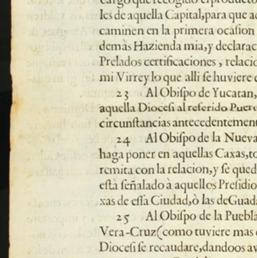 cargo que recogido el producto
les de aquella Capital, para que a
caminen en la primera ocasion
demàs Hazienda mia, y declarac
Prelados certificaciones, relacio
mi Virrey lo que alli se huviere e
23 Al Obispo de Yucatan,
aquella Diocesi al referido Puer
circunstancias antecedentemen
24 Al Obispo de la Nueva
haga poner en aquellas Caxas, to
remita con la relacion, y se qued
està señalado à aquellos Presidio
xas de esta Ciudad, ò las de Guad
25 Al Obispo de la Puebla
Vera-Cruz (como tuviere mas c
Diocesi se recaudare, dandoos av